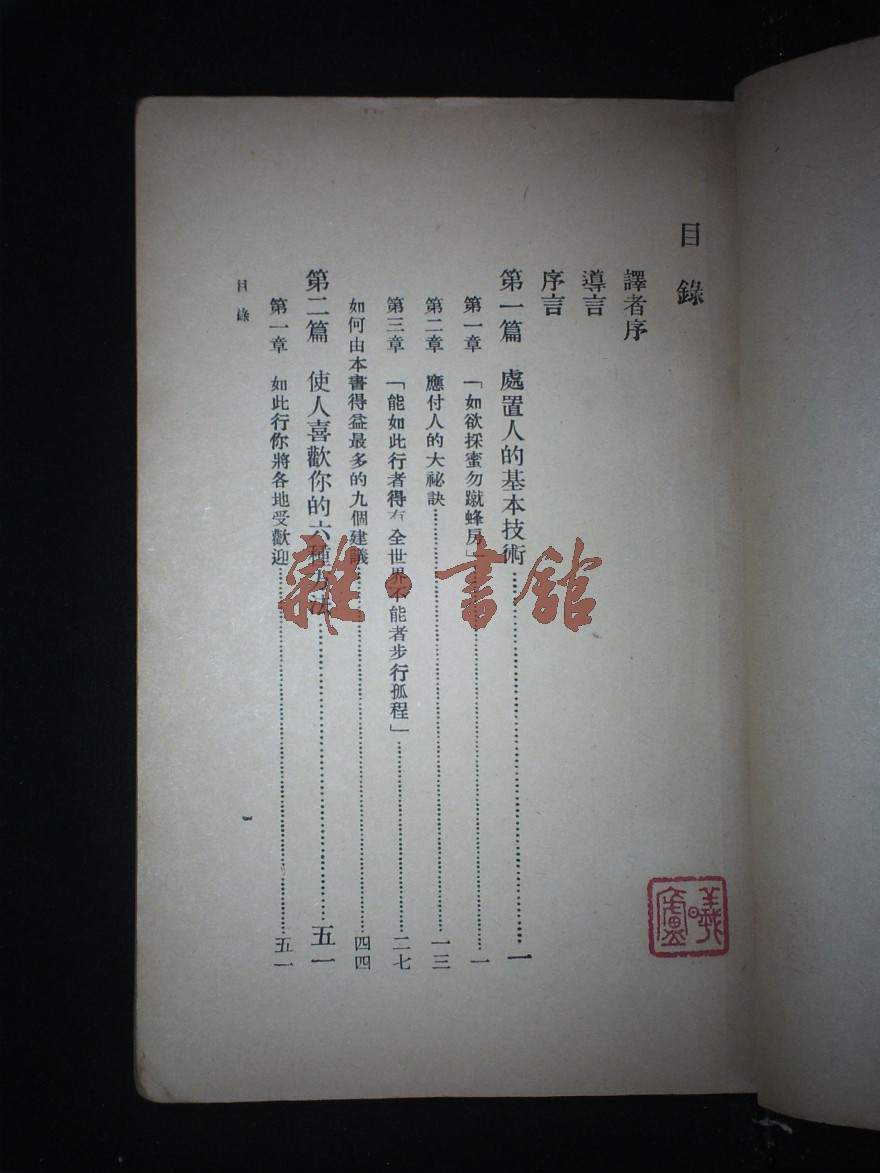 目錄
譯者序
導言
序言
第一篇 處置人的基本技術……一
第一章 「如欲採蜜勿蹴蜂房」……一
第二章 應付人的大祕訣……一三
第三章 「能如此行者得有全世界不能者步行孤程」……二七
如何由本書得益最多的九個建議……四四
第二篇 使人喜歡你的六種方法……五一
第一章 如此行你將各地受歡迎……五一
目錄
一
雜·書館